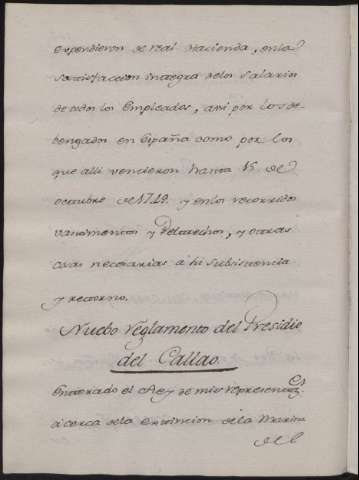 expendieron de real Hacienda, en la
satisfaccion integra delos Salarios
de todos los Empleados, assi por los de-
bengados en España como por los
que alli vencieron hasta 15 de
octubre de 1749. y en los recorridos
y Pertrechos, y otras
cosas necesarias à su subsistencia
y retorno.
Nuebo reglamento del Presidio
del Callao.
Enterado el Rey de mis representac.s
à cerca dela Extincion dela Marina
del